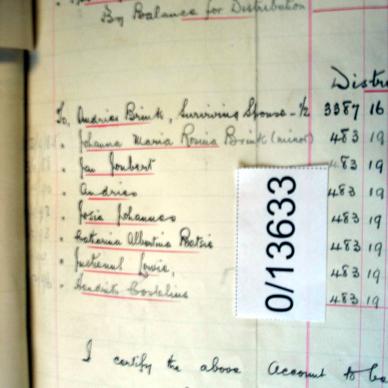 By Balance for Distribution
Distri
To, Andries Brink, Surviving Spouse - ½ 3387 16
" Johanna Maria Rosina Brink (minor) 483 19
" Jan Joubert 483 19
" Andries 483 19
" Josia Johannes 483 19
" Catharina Albertina Betsie 483 19
" Lowie, 483 19
" Hendrik Cornelius 483 19
0/13633
I certify the above Account to be